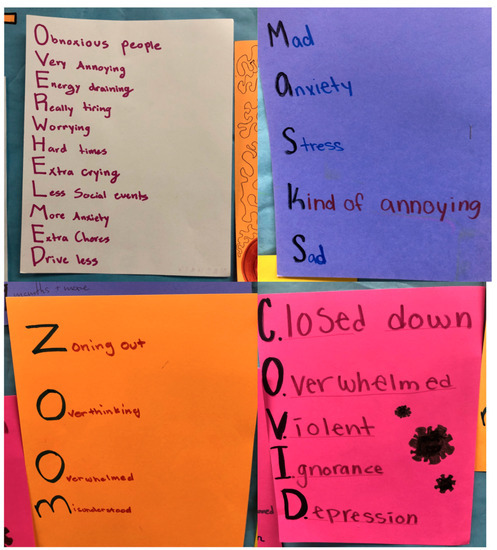 Obnoxious people
Very Annoying
Energy draining
Really tiring
Worrying
Hard times
Extra crying
Less Social events
More Anxiety
Extra Chores
Drive less
Mad
Anxiety
Stress
Kind of annoying
Sad
Zoning out
Overthinking
Overwhelmed
Misunderstood
Closed down
Overwhelmed
Violent
Ignorance
Depression